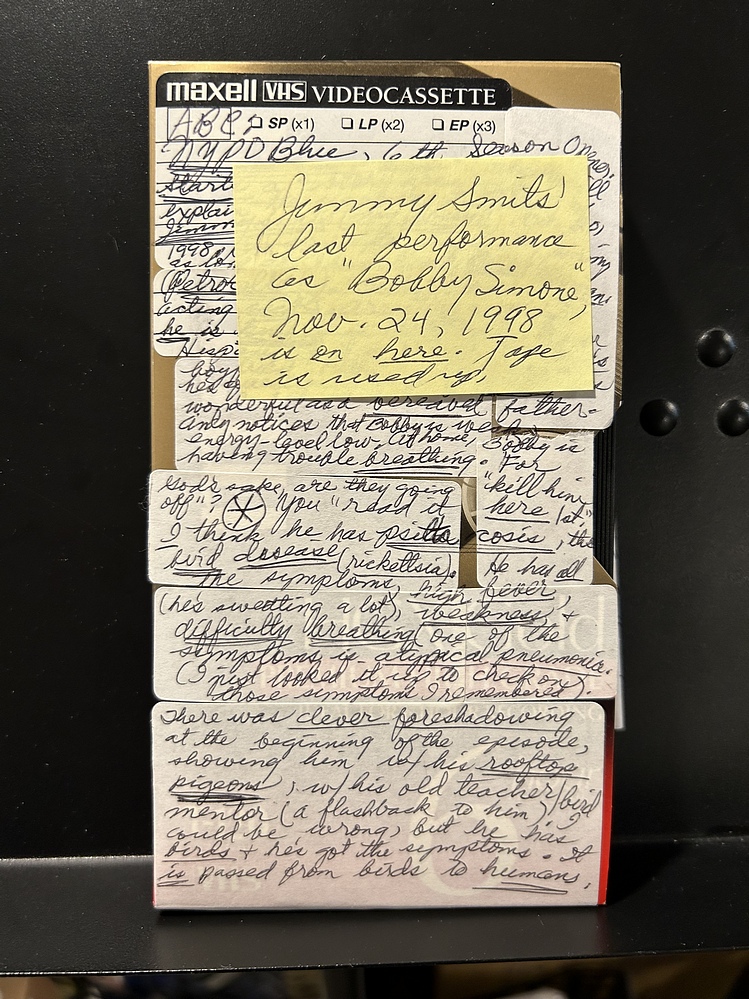 maxell VHS VIDEOCASSETTE
ABC, SP (x1) LP (x2) EP (x3)
NYPD Blue, 6th Season Opener
start
explai
Jimm
1998,
as lon
(Petrov
acting
he is
Hisp
boy
he's
Jimmy Smits'
last performance
as "Bobby Simone",
Nov. 24, 1998
is on here. Tape
is used up.
wonderful as a bereived father.
Andy notices that Bobby is weak,
energy-level low. At home, Bobby is
having trouble breathing. For
God's sake, are they going "kill him
off"? You "read it here 1st,"
I think he has psittacosis, the
bird disease (rickettsia). He has all
the symptoms high fever,
(he's sweating a lot), weakness, +
difficulty breathing (one of the
symptoms is atypical pneumonia.
(I just looked it up to check on
those symptoms I remembered).
There was clever foreshadowing
at the beginning of the episode,
showing him w/ his rooftop
pigeons, w/ his old teacher/bird
mentor (a flashback to him) I
could be wrong, but he has
birds + he's got the symptoms. It
is passed from birds to humans.